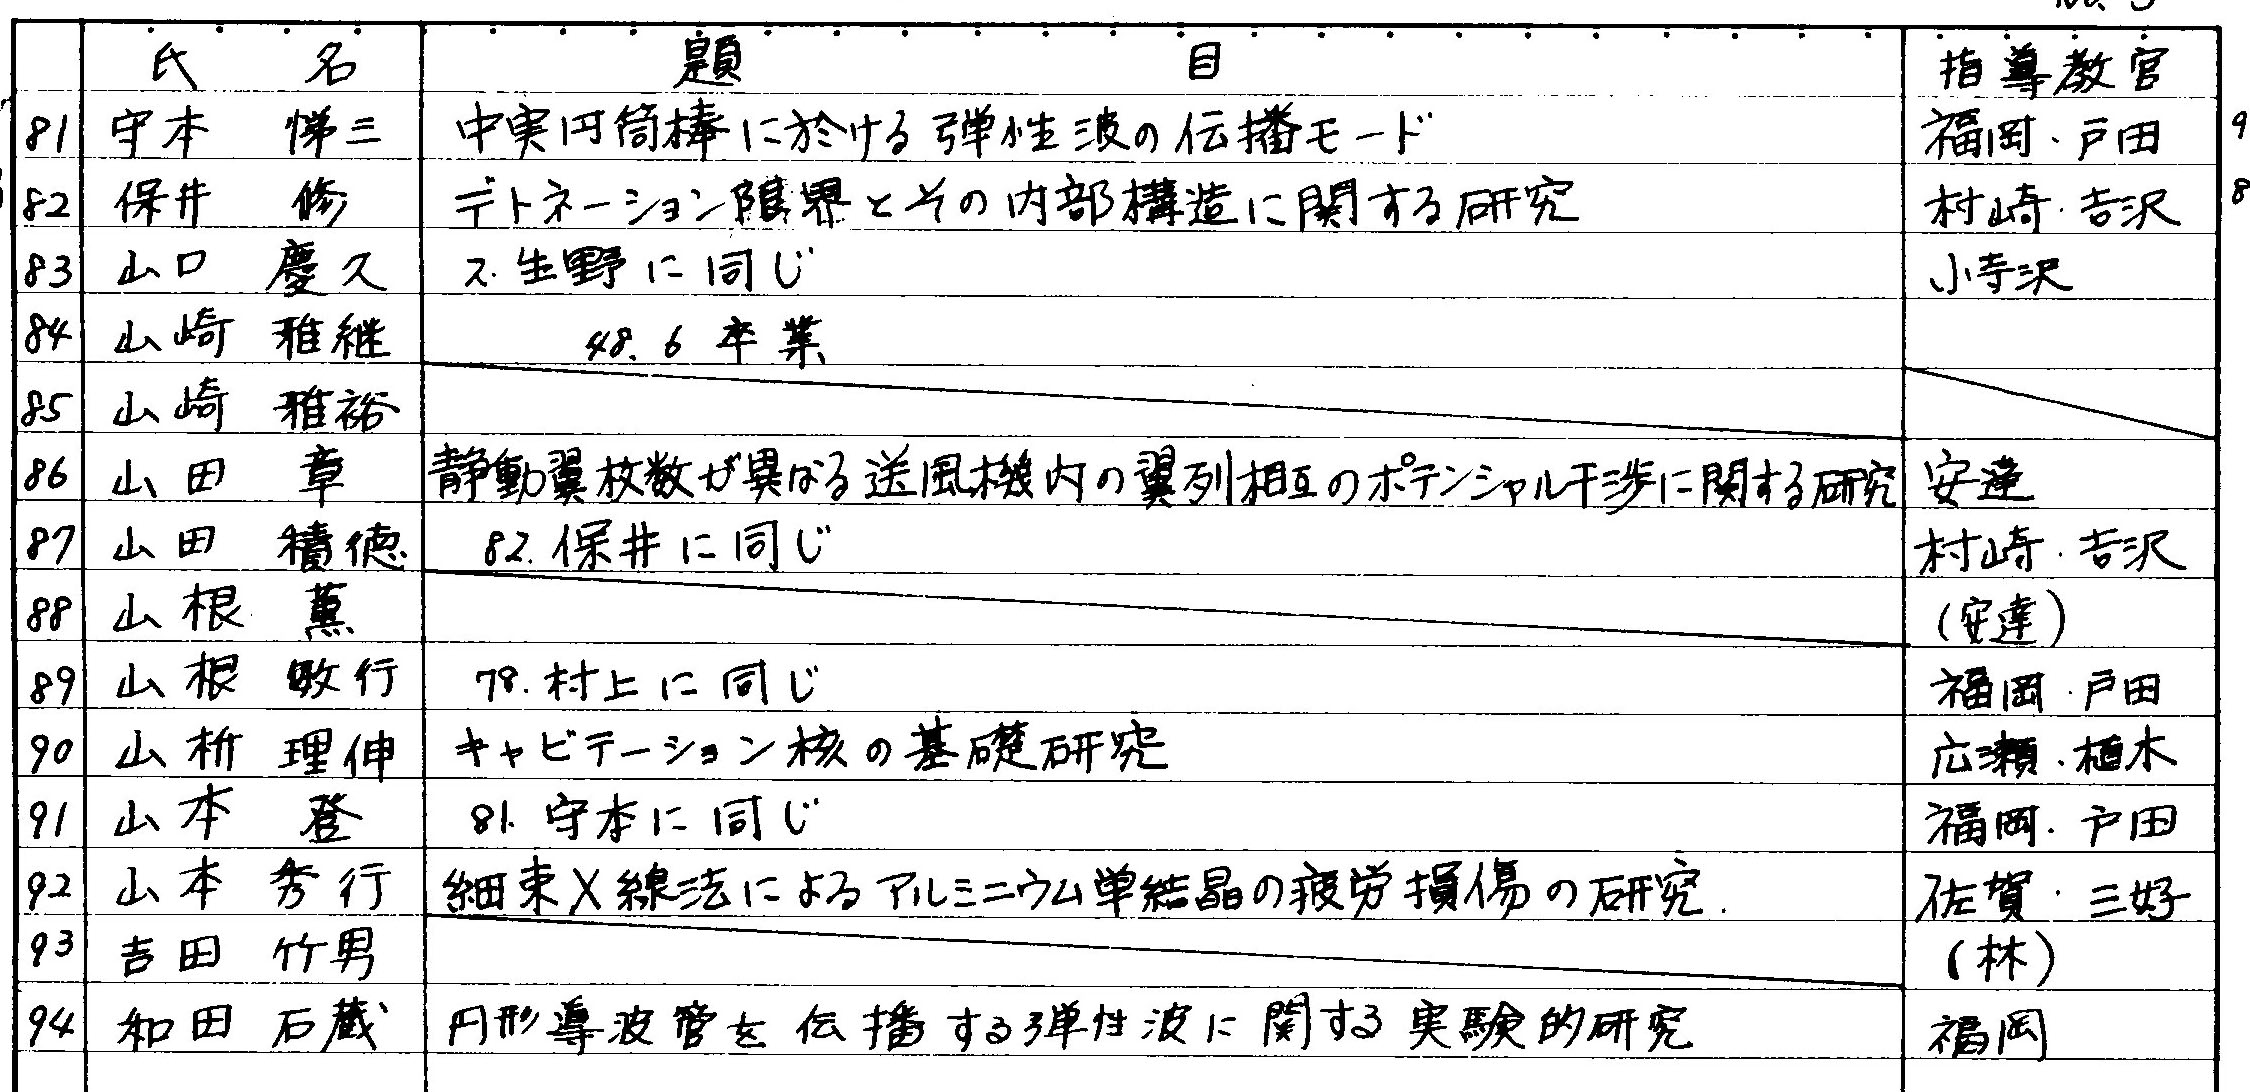 氏 名 題 目 指導教官
81 守本 悌三 中実円筒棒に於ける弾性波の伝播モード 福岡・戸田 9
82 保井 修 デトネーション限界とその内部構造に関する研究 村崎・吉沢 8
83 山口 慶久 2. 生野に同じ 小寺沢
84 山崎 雅継 48. 6 卒業
85 山崎 雅裕
86 山田 章 静動翼枚数が異なる送風機内の翼列相互のポテンシャル干渉に関する研究 安達
87 山田 積徳 82. 保井に同じ 村崎・吉沢
88 山根 薫 (安達)
89 山根 敏行 78. 村上に同じ 福岡・戸田
90 山桝 理伸 キャビテーション核の基礎研究 広瀬・植木
91 山本 登 81. 守本に同じ 福岡・戸田
92 山本 秀行 細束X線法によるアルミニウム単結晶の疲労損傷の研究. 佐賀・三好
93 吉田 竹男 (林)
94 和田 石蔵 円形導波管を伝播する弾性波に関する実験的研究 福岡